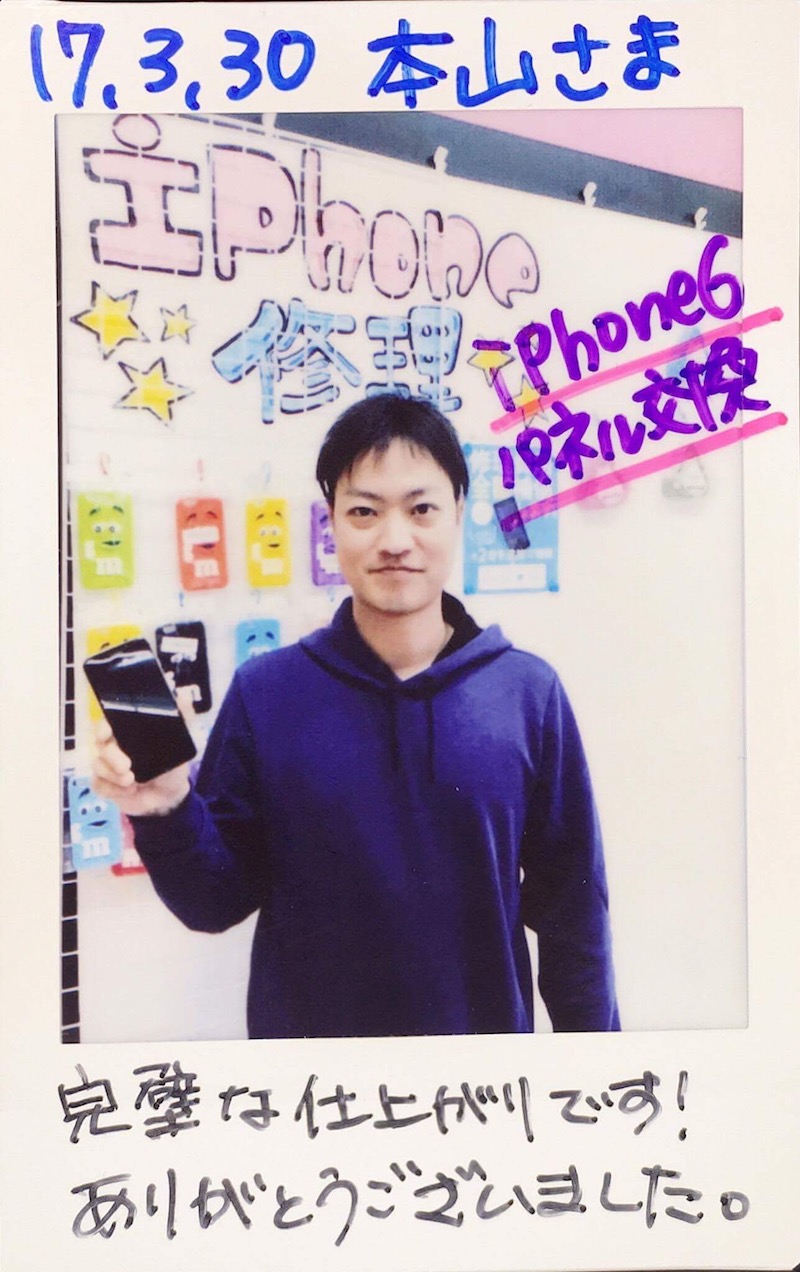 17.3.30 本山さま
iPhone
修理
iPhone6
パネル交換
完璧な仕上がりです!
ありがとうございました。